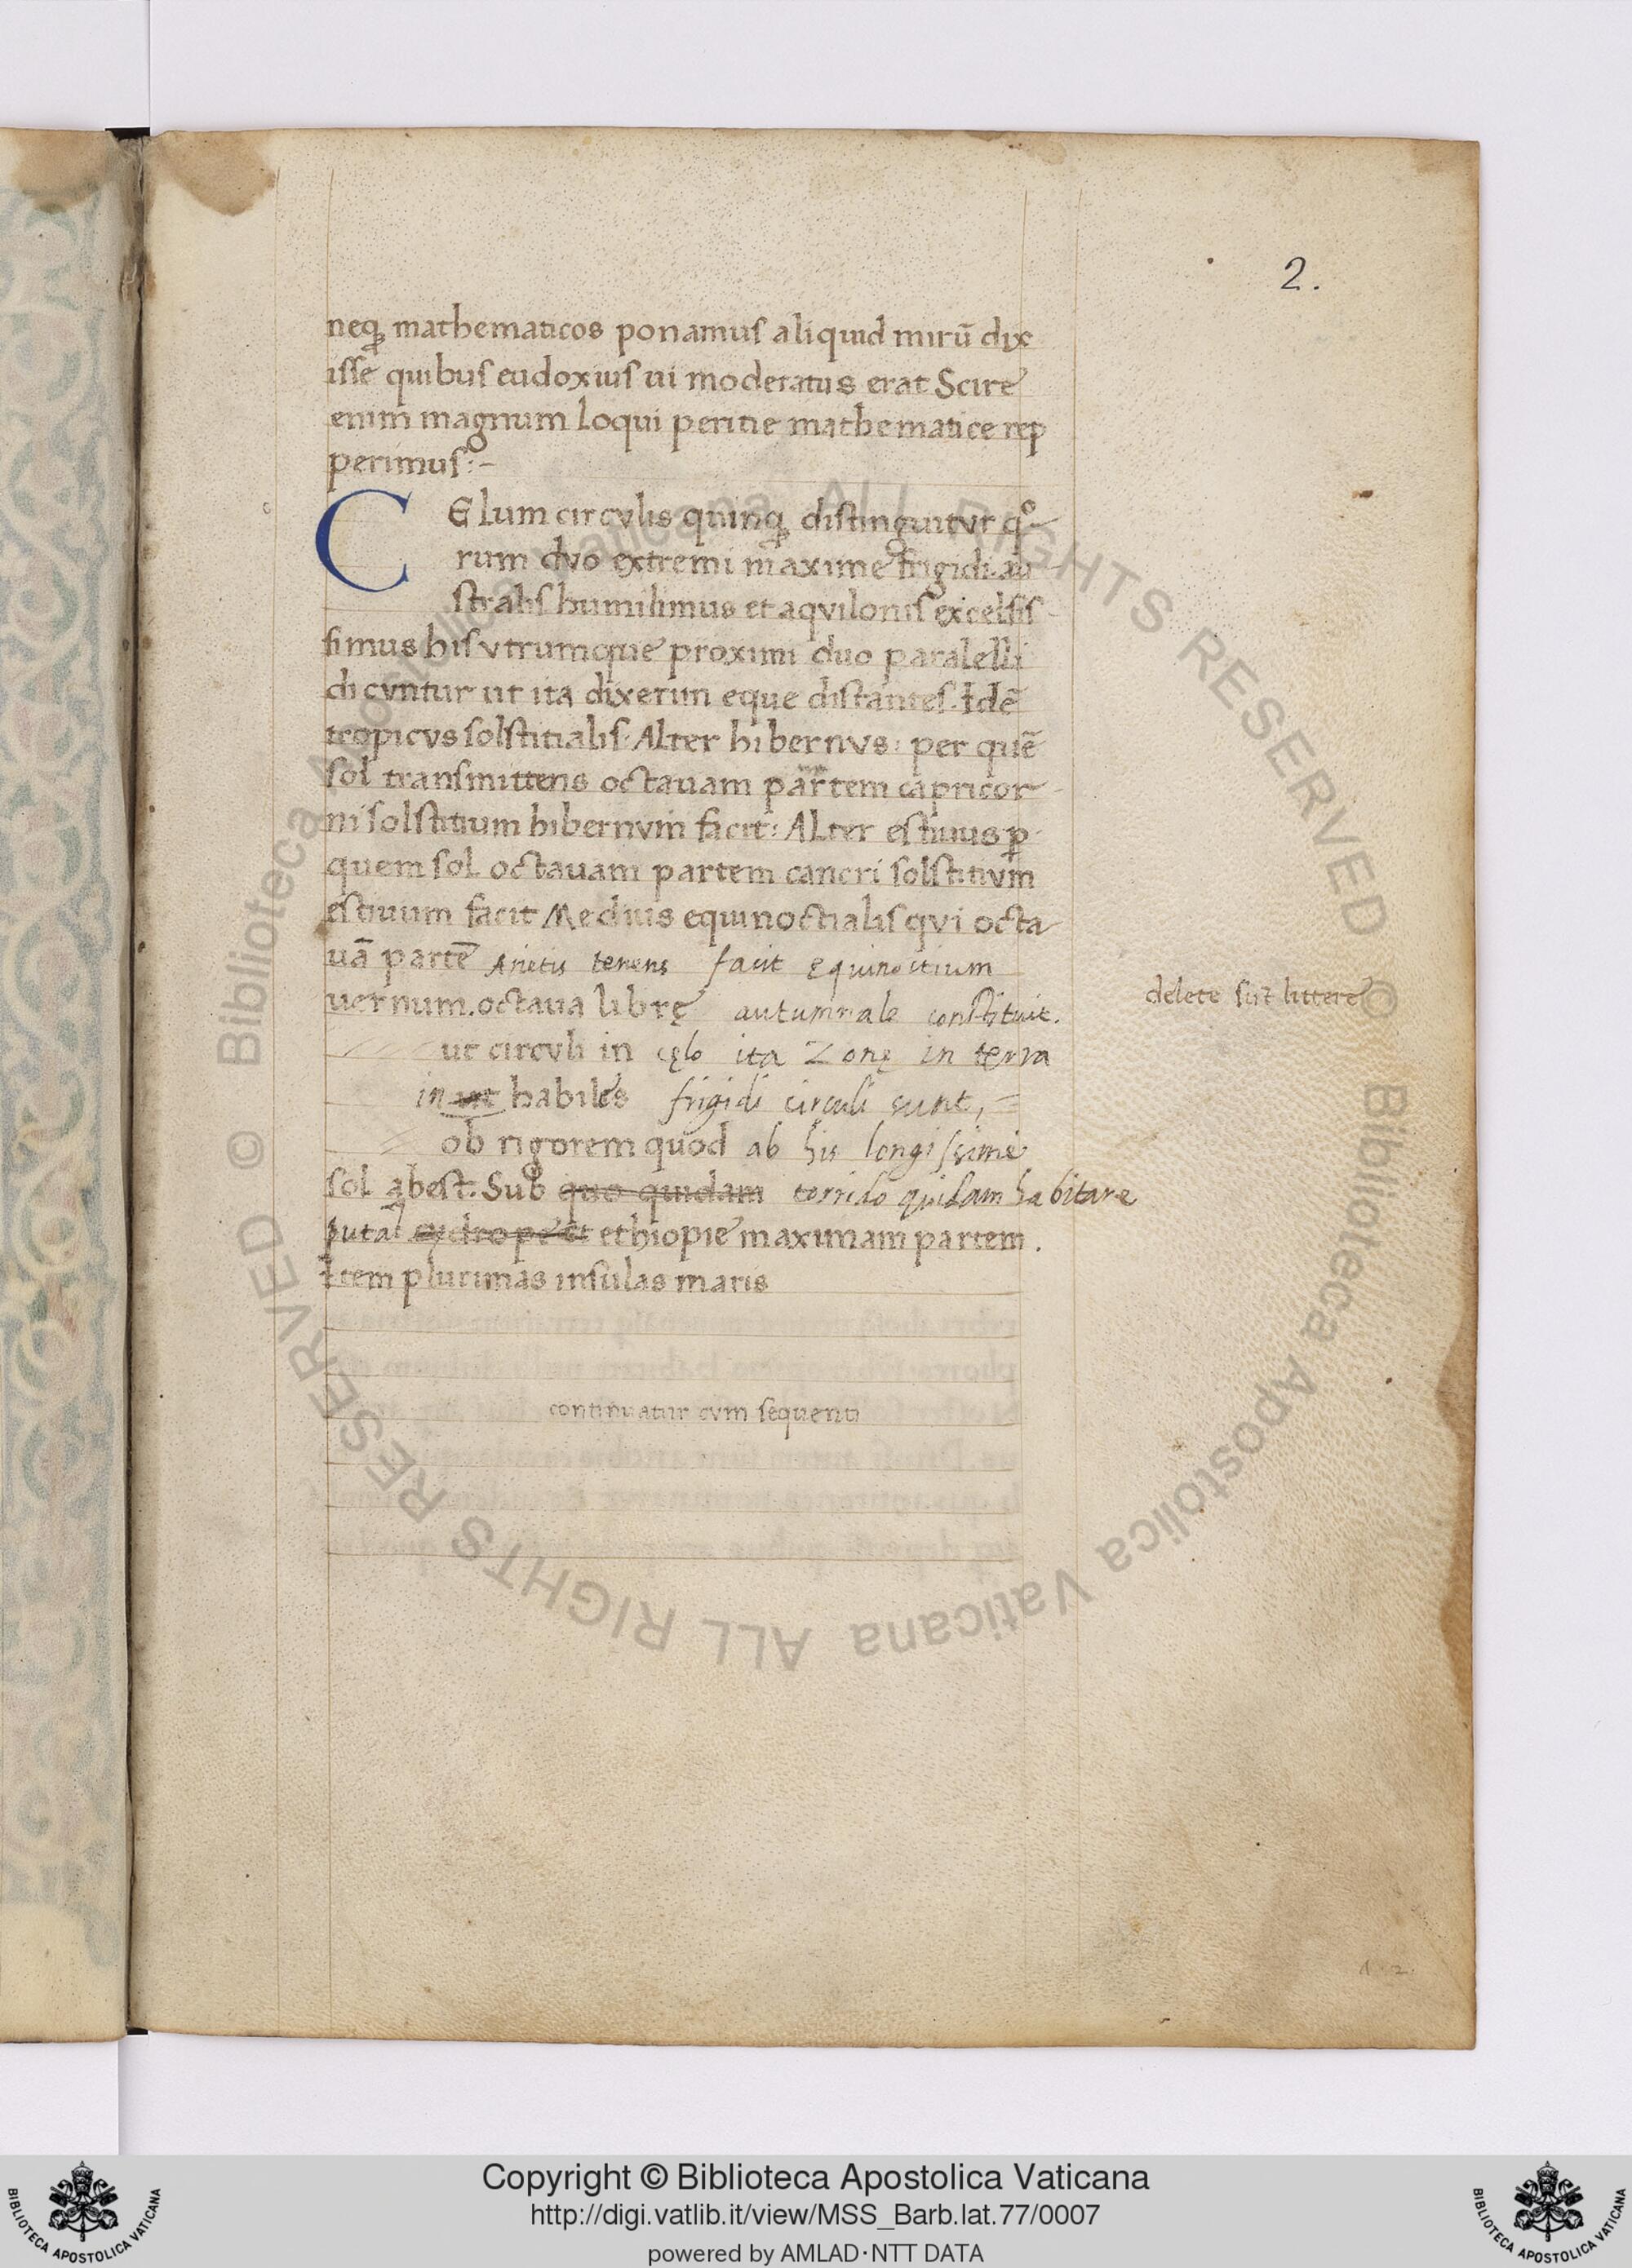 2.
neqȝ mathematicos ponamuſ aliquid mirū dix
iſſe quibuſ eudoxiuſ ui moderatus erat Scire
enim magnum loqui peritie mathematice rep
perimuſ:-
C Elum circvlis quinqȝ diſtinguitvr qº-
rum dvo extremi maxime frigidi. au
ſtraliſ humilimus et aqviloniſ excelſiſ
ſimus hiſ vtrumque proximi duo paralelli
dicvntur ut ita dixerim eque diſtanteſ. Idē
tropicvs solſtitialiſ. Alter hibernvs: per quē
ſol tranſmittens octauam partem capricor
ni ſolſtitium hibernvm facit: Alter eſtiuus p
quem ſol octauam partem cancri ſolſtitivm
eſtiuum facit Medius equinoctialiſ qvi octa
uā partē Arietis tenens facit Equinoctium
uernum. octaua librę autumnale conſtituit.
ut circvli in cęlo ita Zonę in terra
in ut habiles frigidi circuli sunt,
ob rigorem quod ab his longiſsime
ſol abeſt. Sub quo quidam torrido quidam habitare
putāt ethiopie maximam partem.
Item plurimas inſulas maris
delete sūt littere
continuatur cvm ſequenti
1. 2.
Biblioteca Apostolica Vaticana ALL RIGHTS RESERVED ©
Biblioteca Apostolica Vaticana ALL RIGHTS RESERVED ©
Copyright © Biblioteca Apostolica Vaticana
http://digi.vatlib.it/view/MSS_Barb.lat.77/0007
powered by AMLAD·NTT DATA
BIBLIOTECA APOSTOLICA VATICANA
BIBLIOTECA APOSTOLICA VATICANA